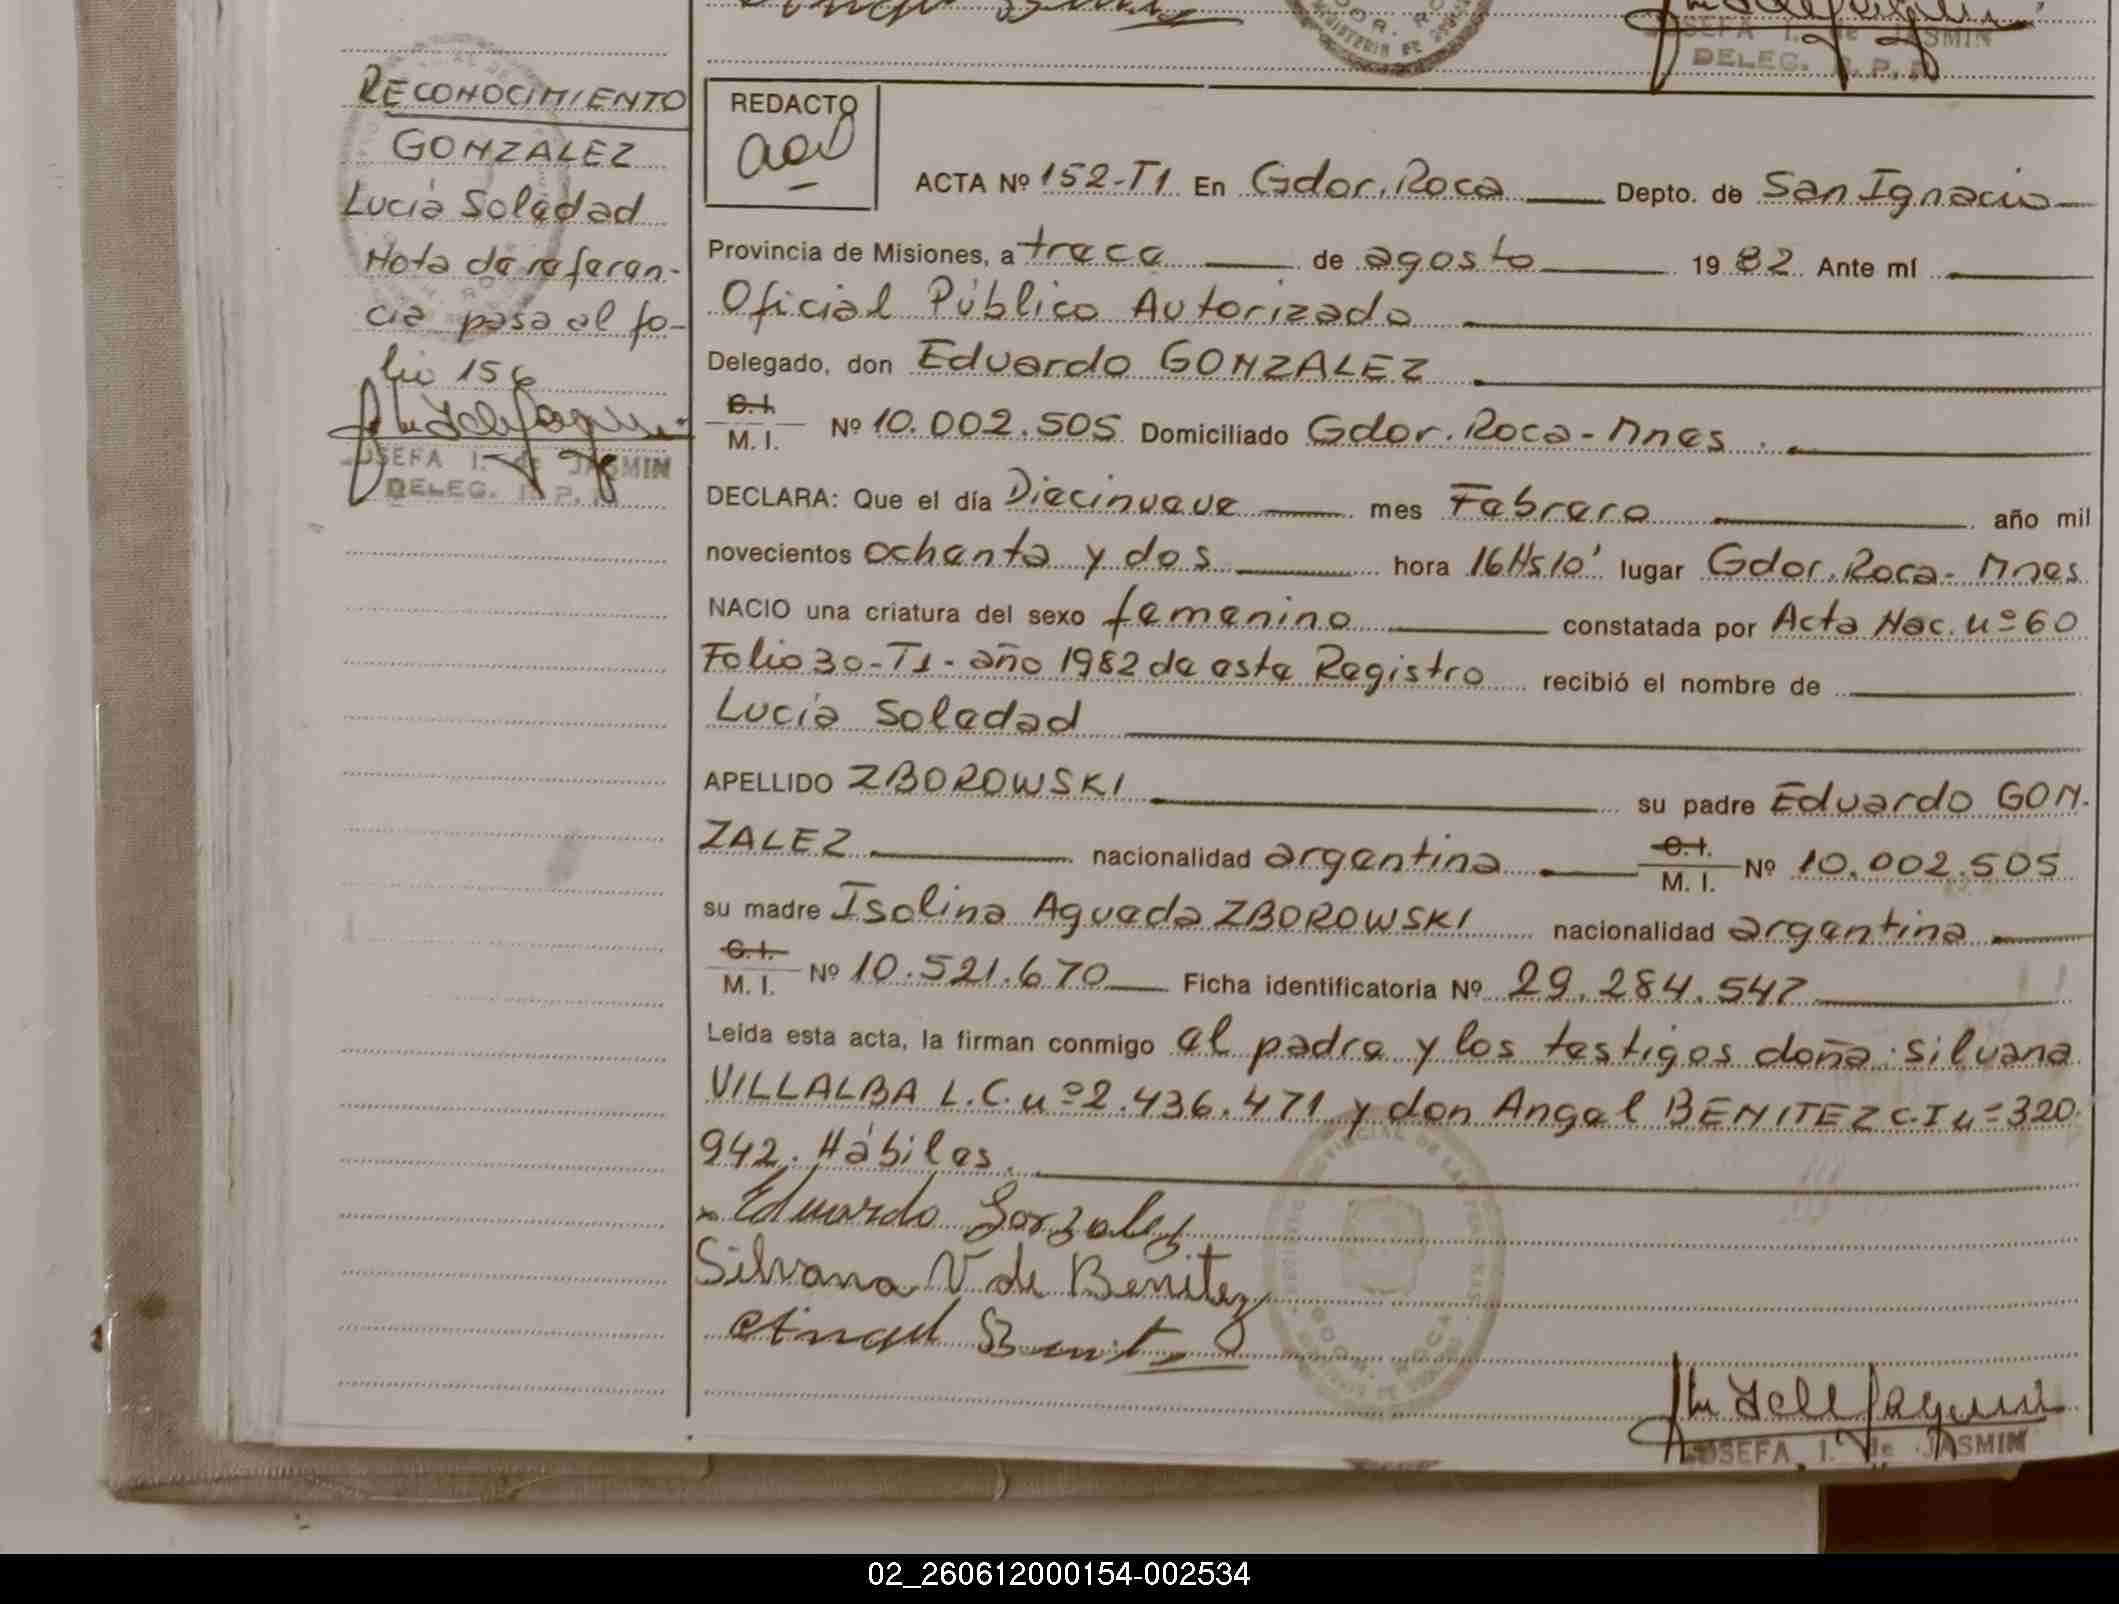 RECONOCIMIENTO
GONZALEZ
Lucía Soledad
Nota de referen-
cia pasa al fo-
lio 156
JOSEFA I. de JASMIN
DELEG. R. P.
JOSEFA I. de JASMIN
DELEG. R. P.
REDACTO
ACTA Nº 152-T1 En Gdor. Roca Depto. de San Ignacio
Provincia de Misiones, a trece de agosto 19 82 Ante mí
Oficial Público Autorizado
Delegado, don Eduardo GONZALEZ
C.I.
M. I. Nº 10.002.505 Domiciliado Gdor. Roca - Mnes.
DECLARA: Que el día Diecinueve mes Febrero año mil
novecientos ochenta y dos hora 16Hs10' lugar Gdor. Roca - Mnes
NACIO una criatura del sexo femenino constatada por Acta Nac. nº 60
Folio 30-T1- año 1982 de este Registro recibió el nombre de
Lucía Soledad
APELLIDO ZBOROWSKI su padre Eduardo GON-
ZALEZ nacionalidad argentina C.I. M. I. Nº 10.002.505
su madre Isolina Agueda ZBOROWSKI nacionalidad argentina
C.I.
M. I. Nº 10.521.670 Ficha identificatoria Nº 29.284.547
Leída esta acta, la firman conmigo el padre y los testigos doña Silvana
VILLALBA L.C. nº 2.436.471 y don Angel BENITEZ C.I nº 320.
942. Hábiles.
Eduardo Gonzalez
Silvana V de Benitez
Angel Benitez
JOSEFA I. de JASMIN
02_260612000154-002534